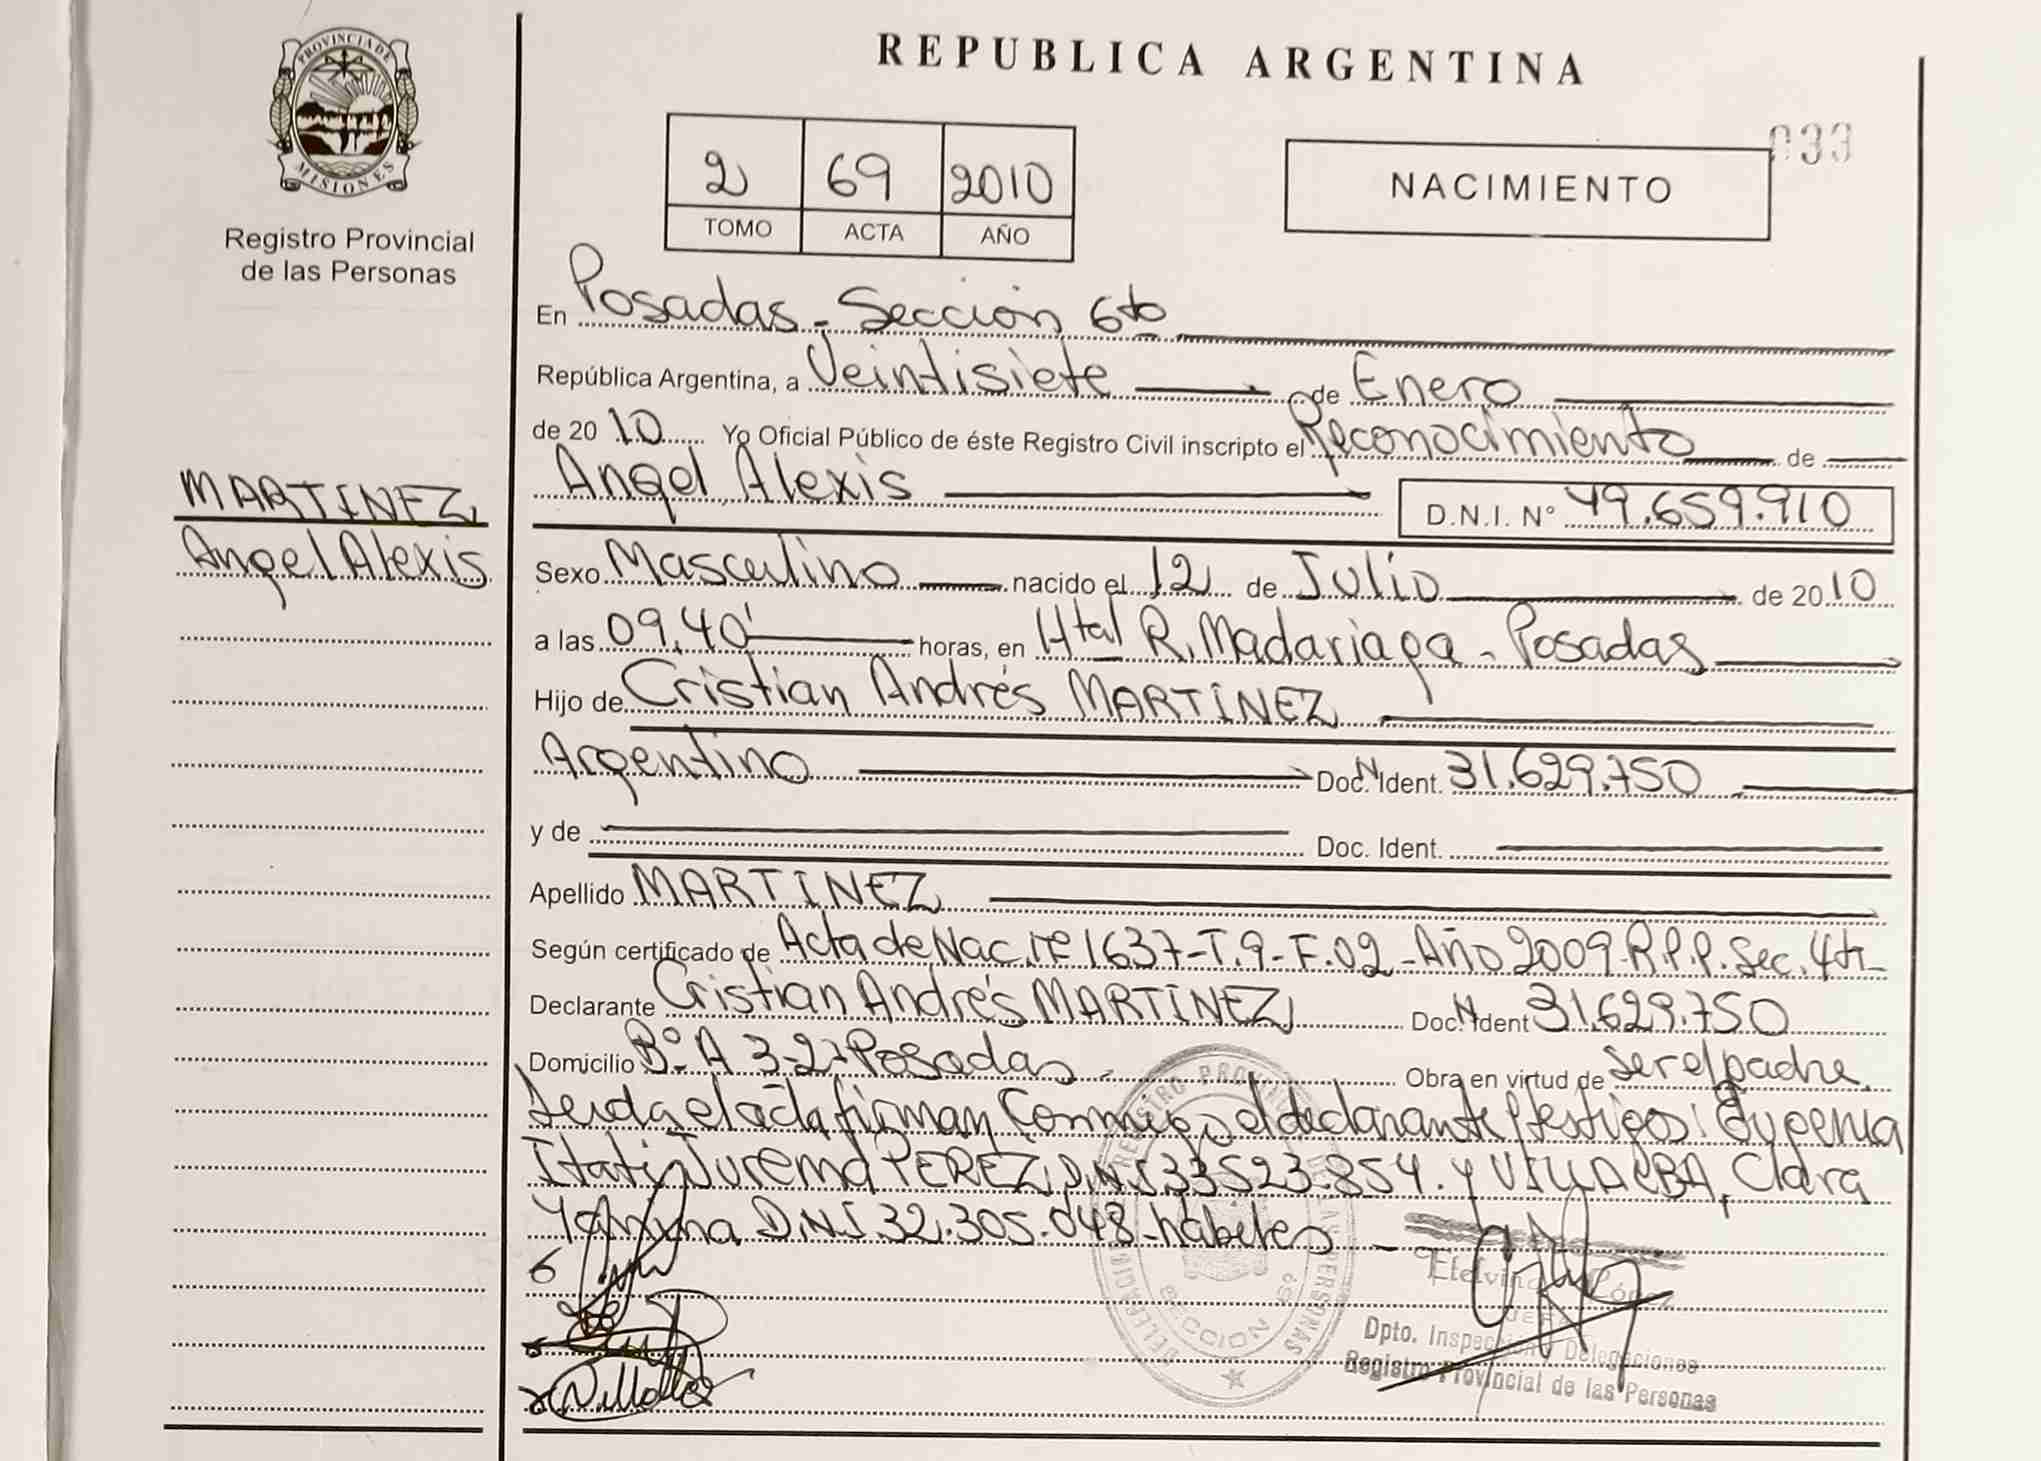 PROVINCIA DE
MISIONES
Registro Provincial
de las Personas
MARTINEZ,
Angel Alexis
REPUBLICA ARGENTINA
033
2 69 2010
TOMO ACTA AÑO
NACIMIENTO
En Posadas - Sección 6ta
República Argentina, a Veintisiete de Enero
de 2010 Yo Oficial Público de éste Registro Civil inscripto el Reconocimiento de
Angel Alexis D.N.I. N° 49.659.910
Sexo Masculino nacido el 12 de Julio de 2010
a las 09,40' horas, en Htal R. Madariaga - Posadas
Hijo de Cristian Andrés MARTINEZ
Argentino Doc. N Ident. 31.629.750
y de Doc. Ident.
Apellido MARTINEZ
Según certificado de Acta de Nac. N° 1637-T.9-F.02-Año 2009-R.P.P. Sec. 4ta
Declarante Cristian Andrés MARTINEZ Doc. N Ident 31.629.750
Domicilio B° A 3-2- Posadas Obra en virtud de ser el padre.
Leida el acta firman conmigo el declarante y testigos: Eugenia
Itati Jurema PEREZ, D.N.I 33523.854. y VILLALBA, Clara
Yanina D.N.I. 32.305.048-hábiles
DELEGACION REGISTRO PROVINCIAL DE LAS PERSONAS
SECCION 6a
Etelvina López
JEFA
Dpto. Inspección y Delegaciones
Registro Provincial de las Personas